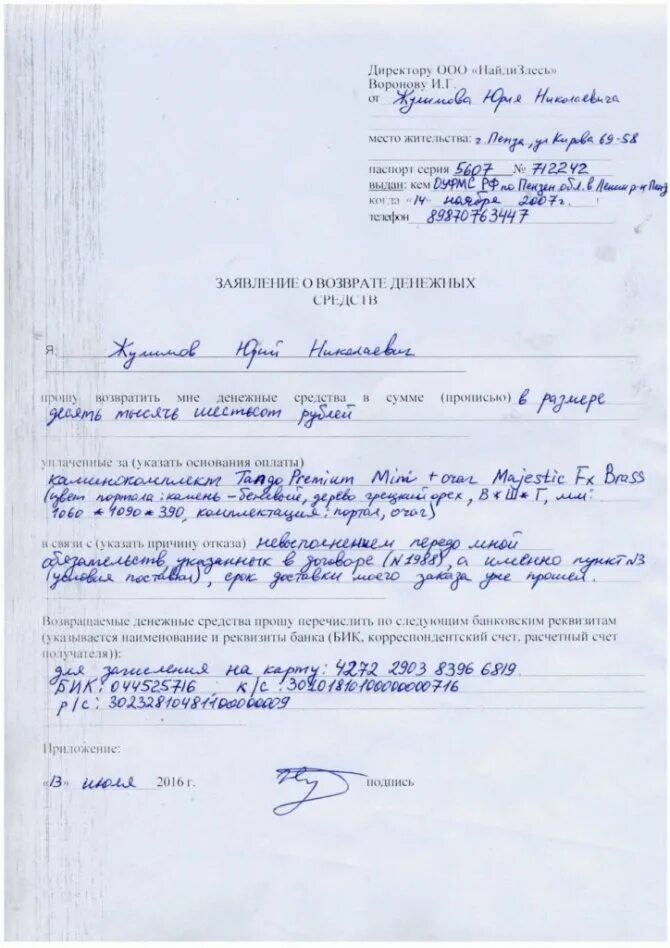 Директору ООО «НайдиЗдесь»
Воронову И.Г.
от Жулимова Юрия Николаевича
место жительства: г. Пенза, ул Кирова 69-58
паспорт серия 5607 № 712242
выдан: кем ОУФМС РФ по Пензен. обл. в Ленин. р-н
когда «14» ноября 2007г.
телефон 89870763447
ЗАЯВЛЕНИЕ О ВОЗВРАТЕ ДЕНЕЖНЫХ
СРЕДСТВ
Я, Жулимов Юрий Николаевич
прошу возвратить мне денежные средства в сумме (прописью) в размере
десять тысячь шестьсот рублей
уплаченные за (указать основания оплаты)
каминокомплект Tango Premium Mini + очаг Majestic Fx Brass
(цвет портала: камень - бежевый, дерево грецкий орех, В*Ш*Г, мм:
1060*1090*390, комплектация: портал, очаг)
в связи с (указать причину отказа) невосполнением передо мной
обязательств, указанных в договоре (N1988), а именно пункт N3
(условия поставки), срок доставки моего заказа уже прошел.
Возвращаемые денежные средства прошу перечислить по следующим банковским реквизитам
(указывается наименование и реквизиты банка (БИК, корреспондентский счет, расчетный счет
получателя)):
для зачисления на карту: 4272 2903 8396 6819.
БИК: 044525716, к/с: 30101810100000000716
р/с: 30232810481100000009
Приложение:
«13» июля 2016 г. подпись